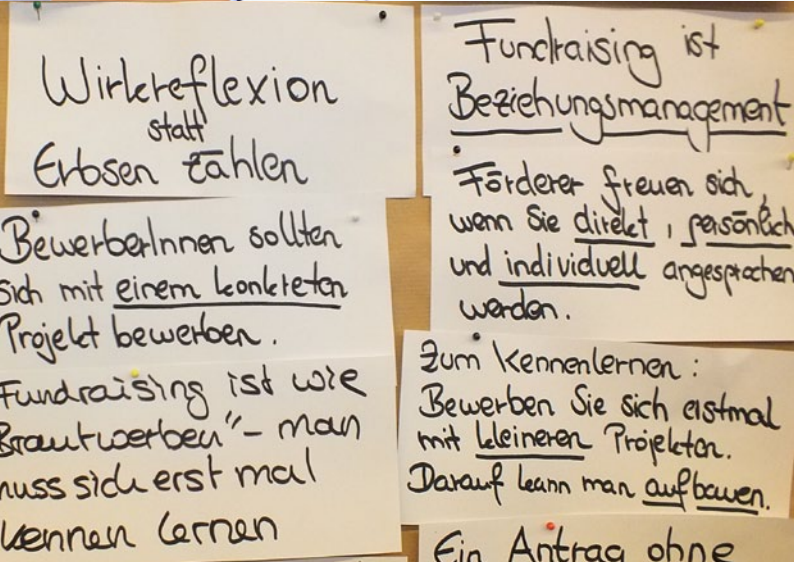 Wirkreflexion
statt
Erbsen zählen
BewerberInnen sollten
sich mit einem konkreten
Projekt bewerben.
Fundraising ist wie
Brautwerben" – man
muss sich erst mal
kennen lernen
Fundraising ist
Beziehungsmanagement
Förderer freuen sich,
wenn Sie direkt, persönlich
und individuell angesprochen
werden.
Zum Kennenlernen:
Bewerben Sie sich erstmal
mit kleineren Projekten.
Darauf kann man aufbauen.
Ein Antrag ohne